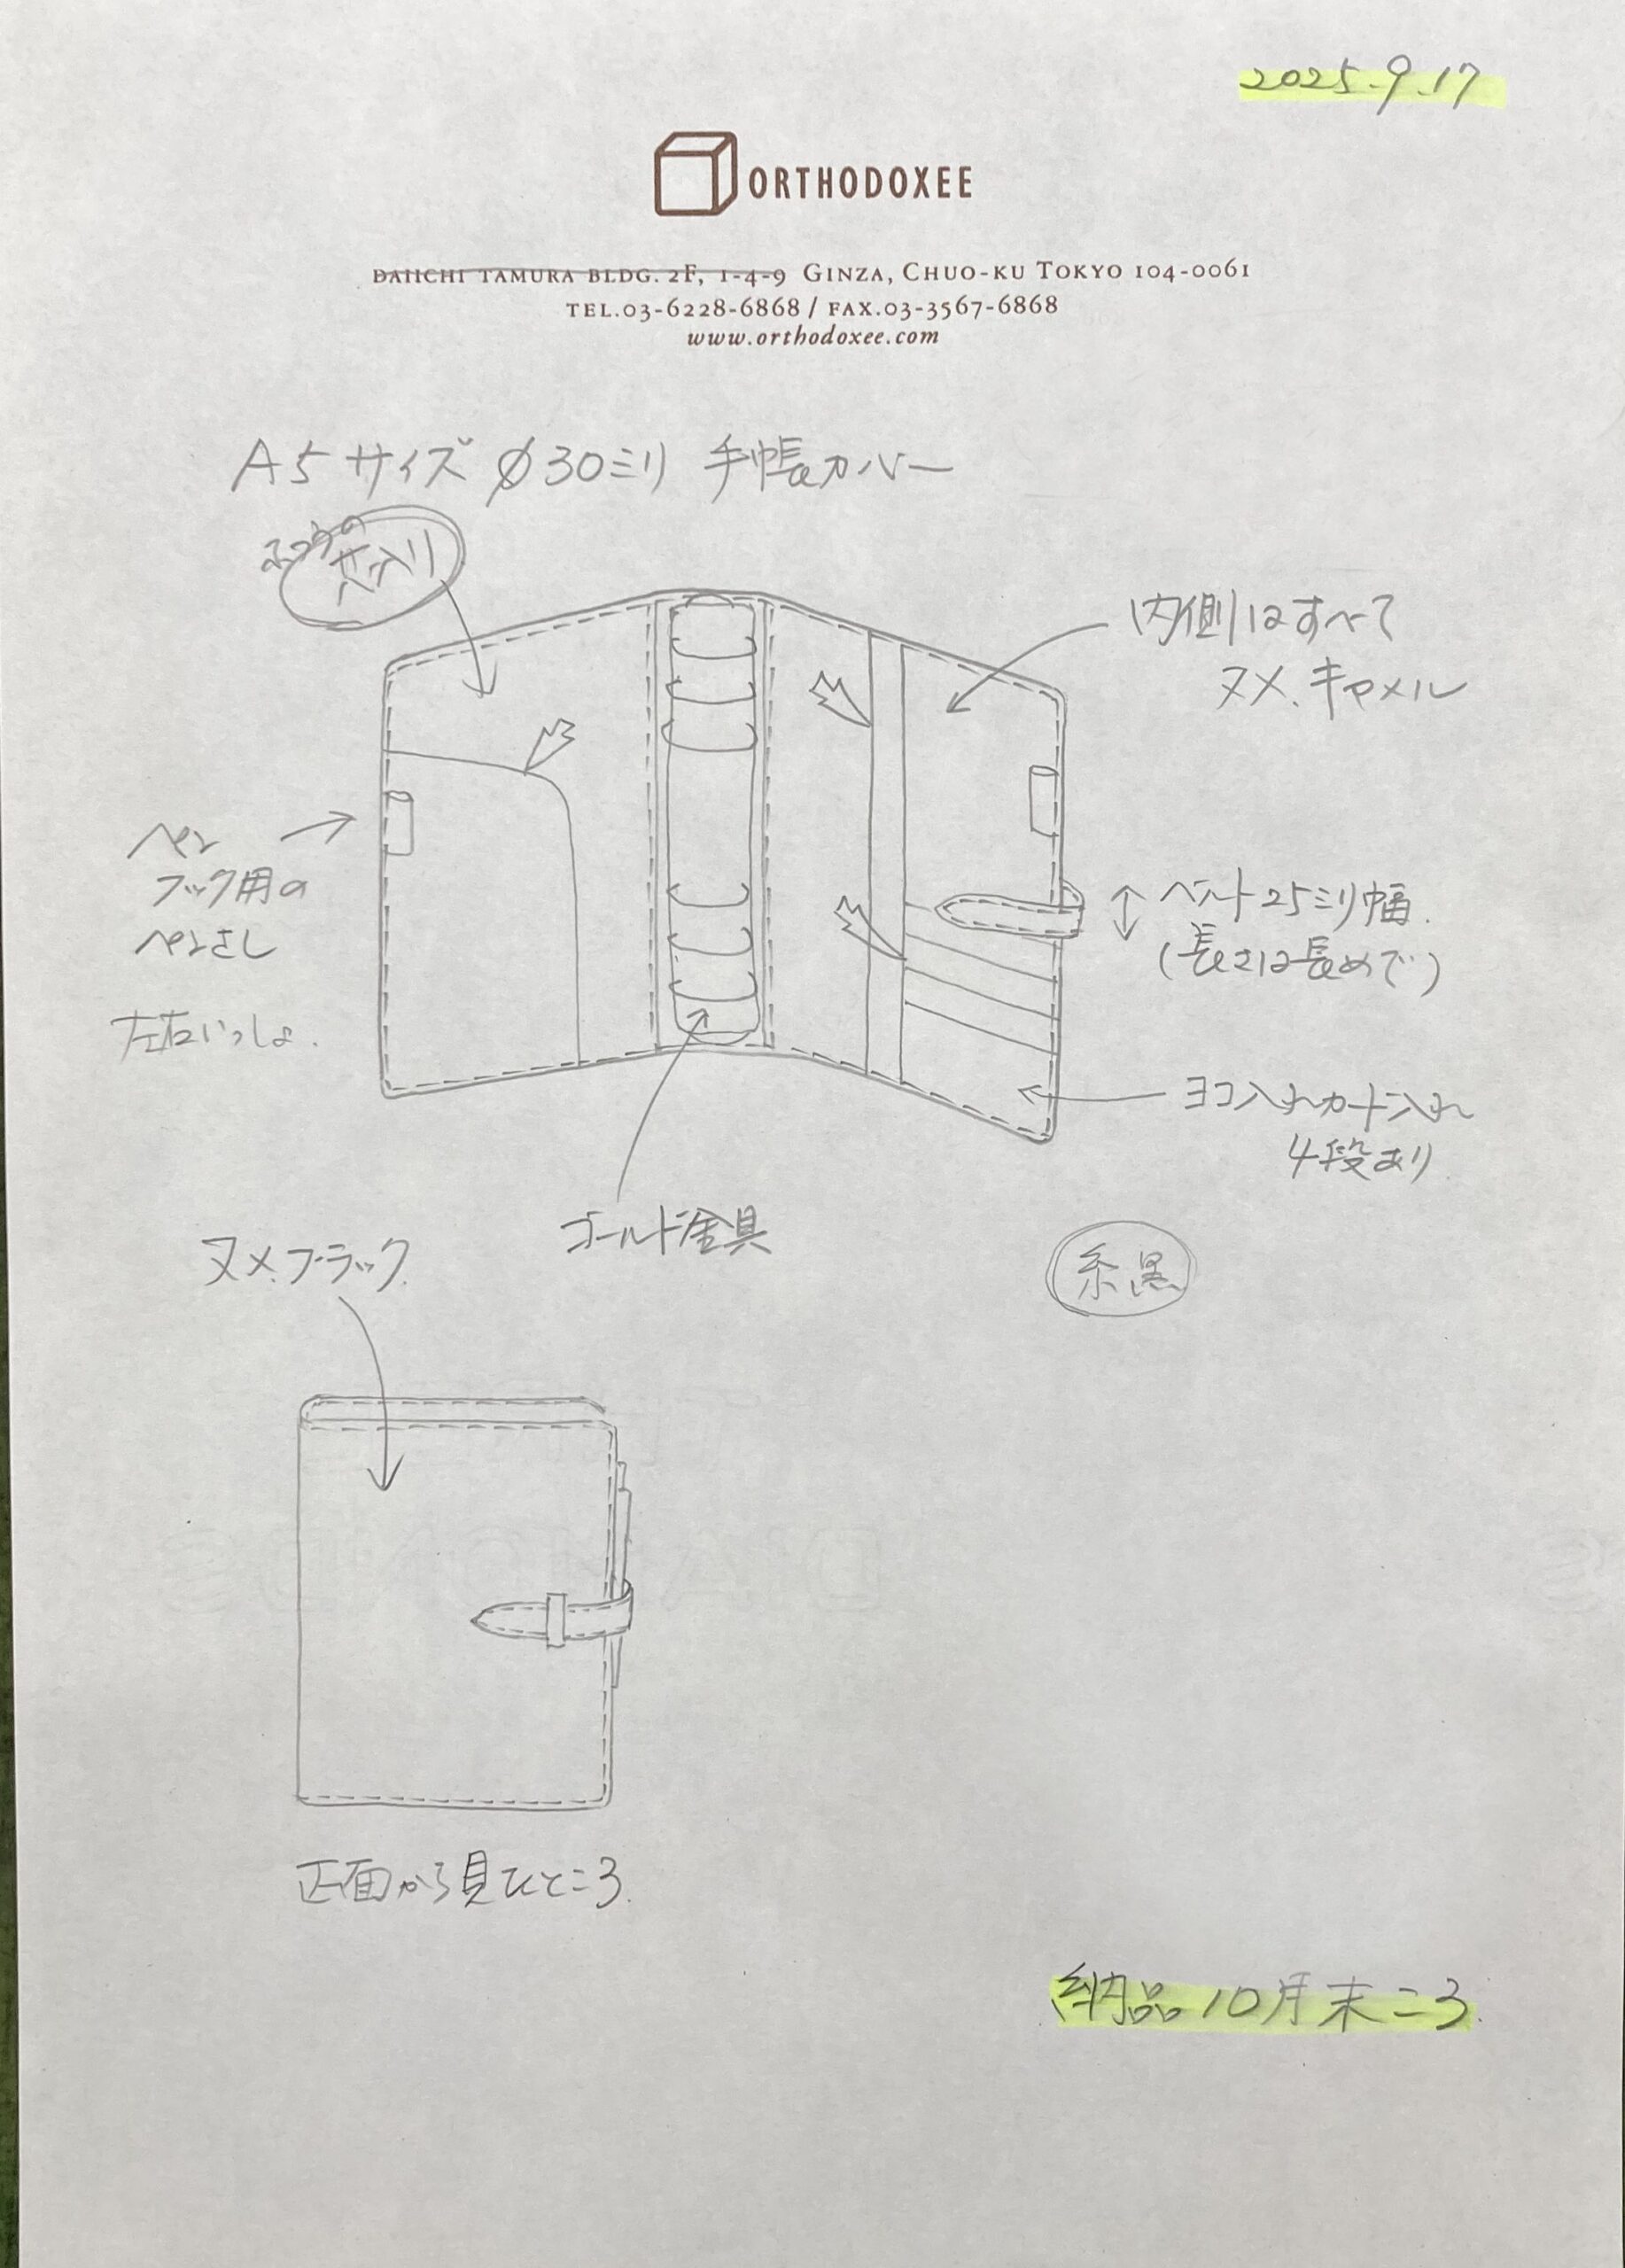 2025.9.17
ORTHODOXEE
DAIICHI TAMURA BLDG. 2F, 1-4-9 GINZA, CHUO-KU TOKYO 104-0061
TEL.03-6228-6868 / FAX.03-3567-6868
www.orthodoxee.com
A5サイズ φ30ミリ 手帳カバー
ふつうの
芯入り
内側はすべて
ヌメ.キャメル
ペン
フック用の
ペンさし
左右いっしょ.
ベルト25ミリ幅.
(長さは長めで)
ヨコ入れカード入れ
4段あり
ゴールド金具
ヌメ.ブラック.
糸黒
正面から見たところ.
納品10月末ころ.